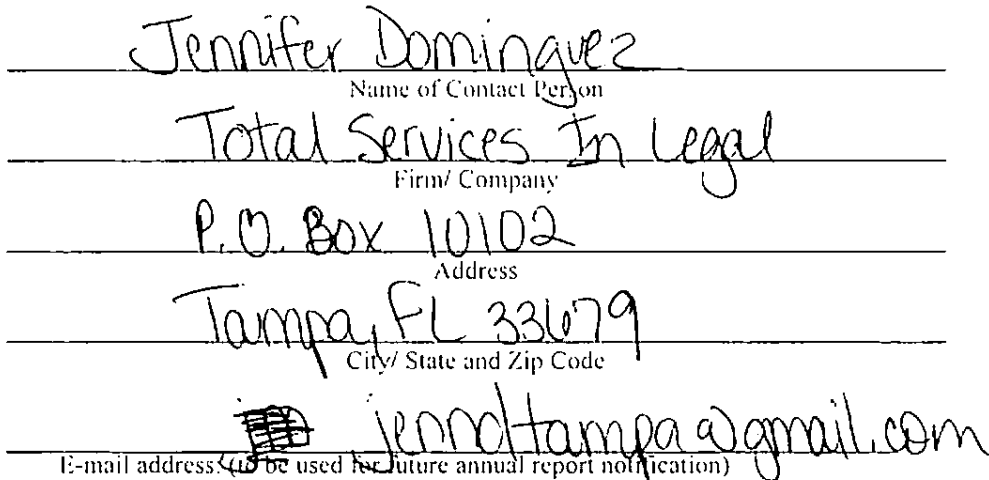 Jennifer Dominguez
Name of Contact Person
Total Services In Legal
Firm/ Company
P.O. Box 10102
Address
Tampa, FL 33679
City/ State and Zip Code
jenndtampa@gmail.com
E-mail address: (to be used for future annual report notification)